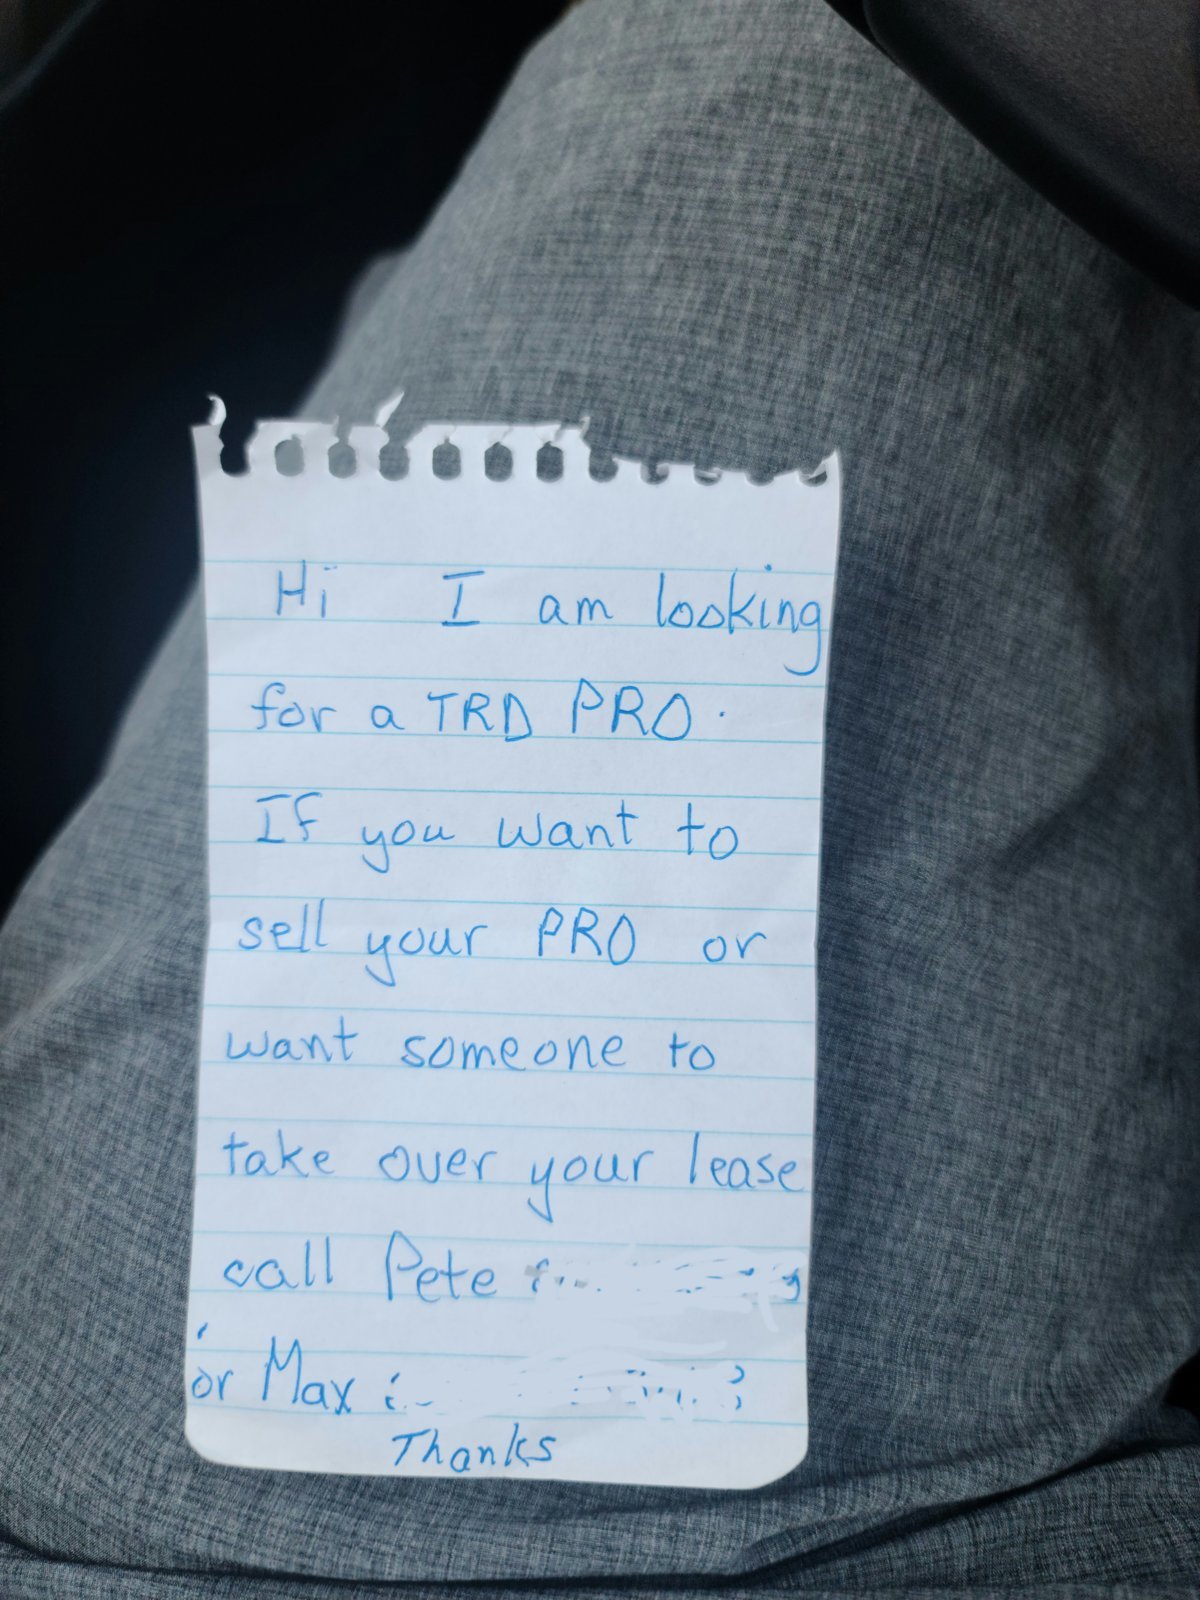 Hi I am looking
for a TRD PRO.
If you want to
sell your PRO or
want someone to
take over your lease
call Pete
or Max
Thanks